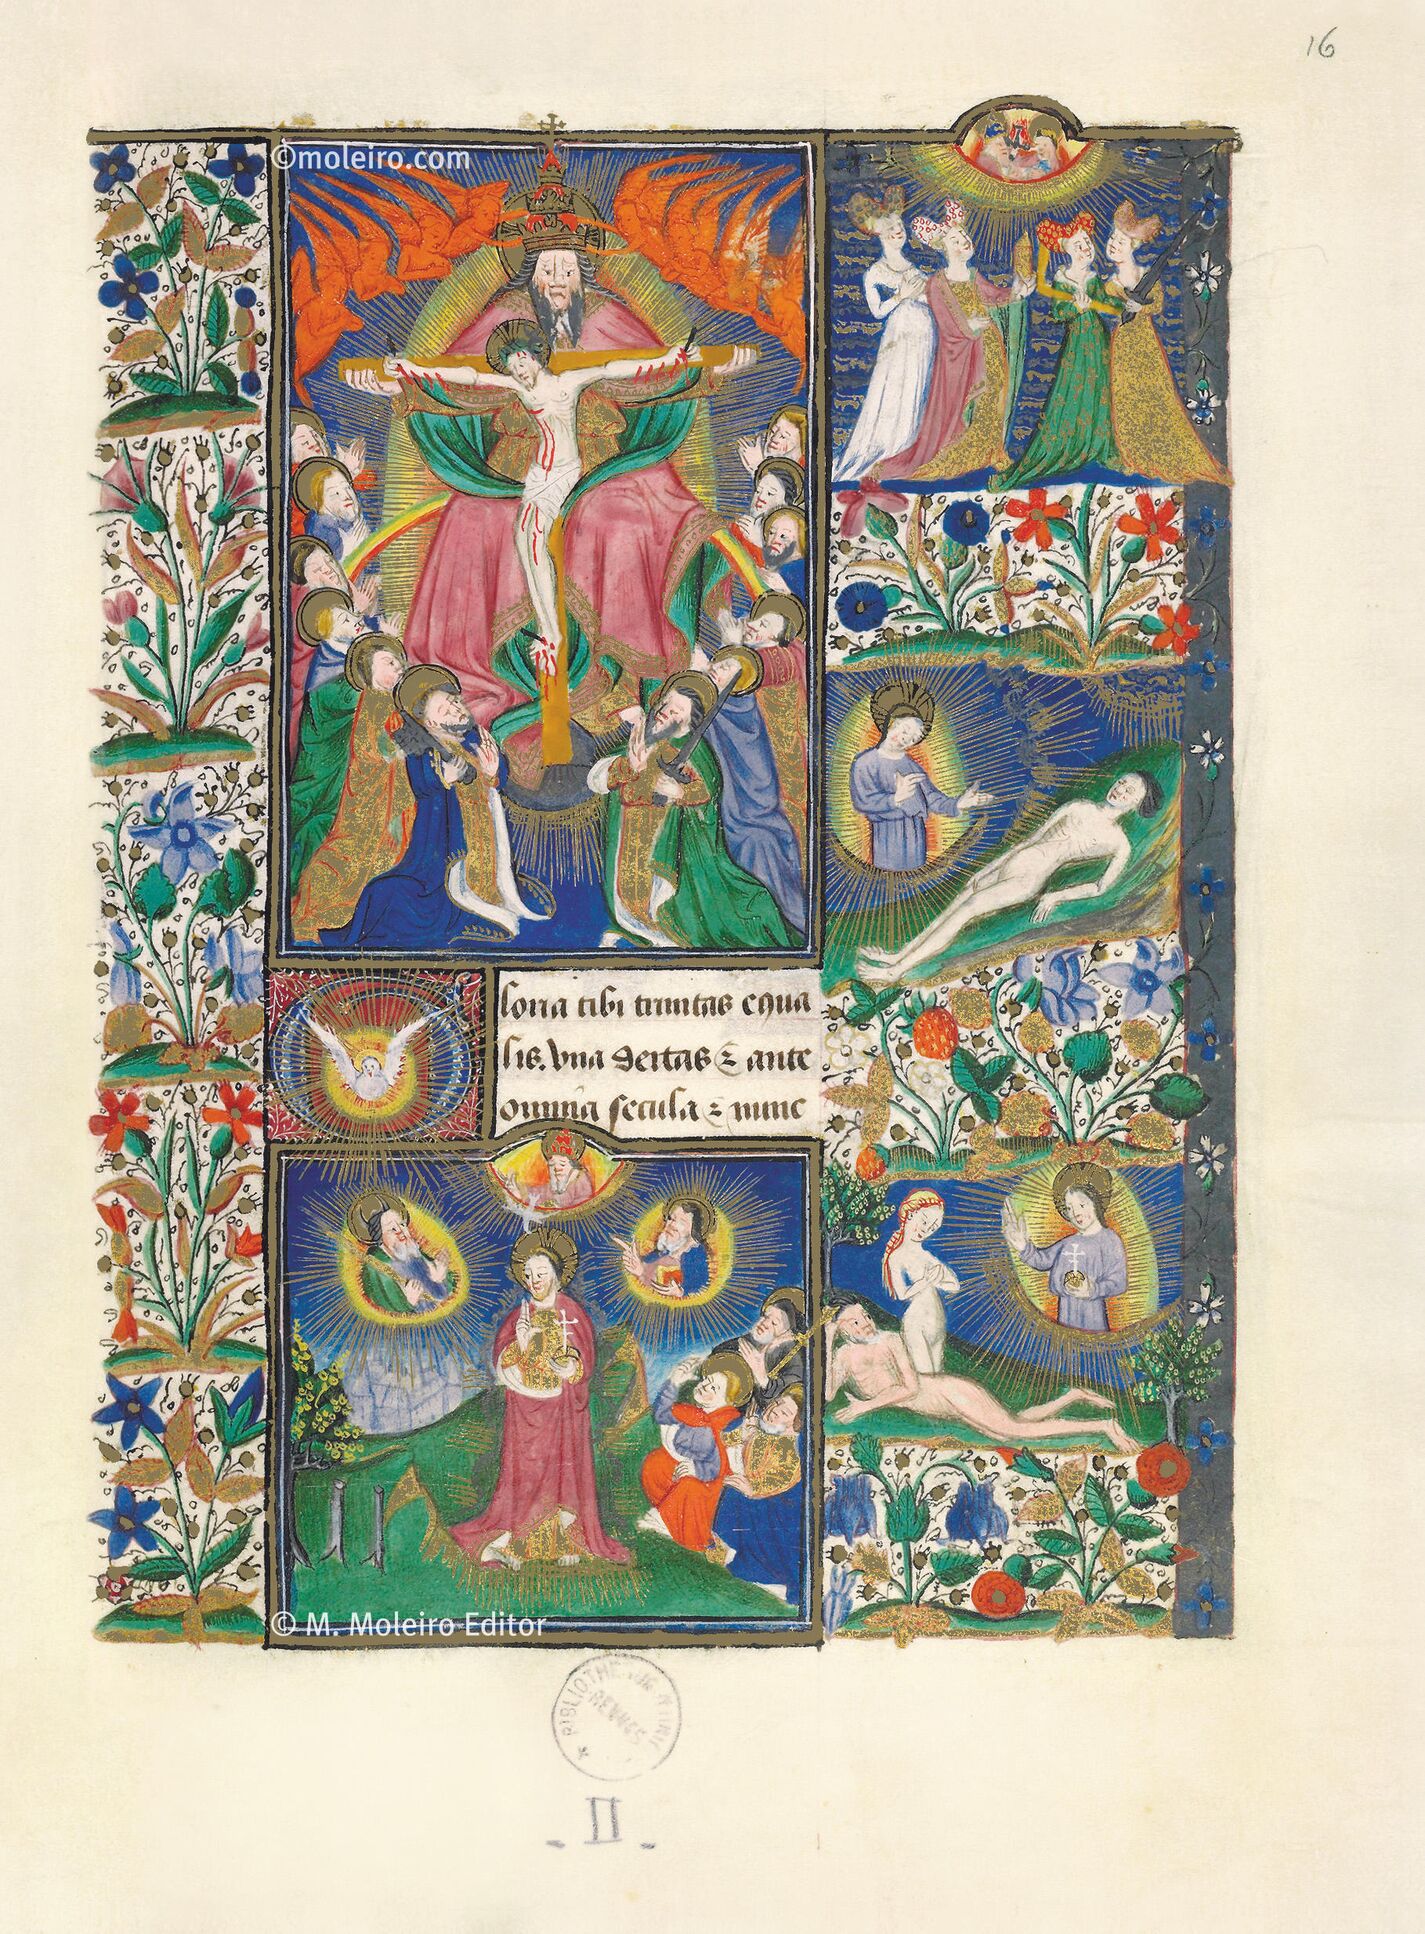 16
©moleiro.com
loria tibi trinitas equa
lis. vna deitas & ante
omnia secula & nunc
© M. Moleiro Editor
BIBLIOTHE
RENNES
- II -